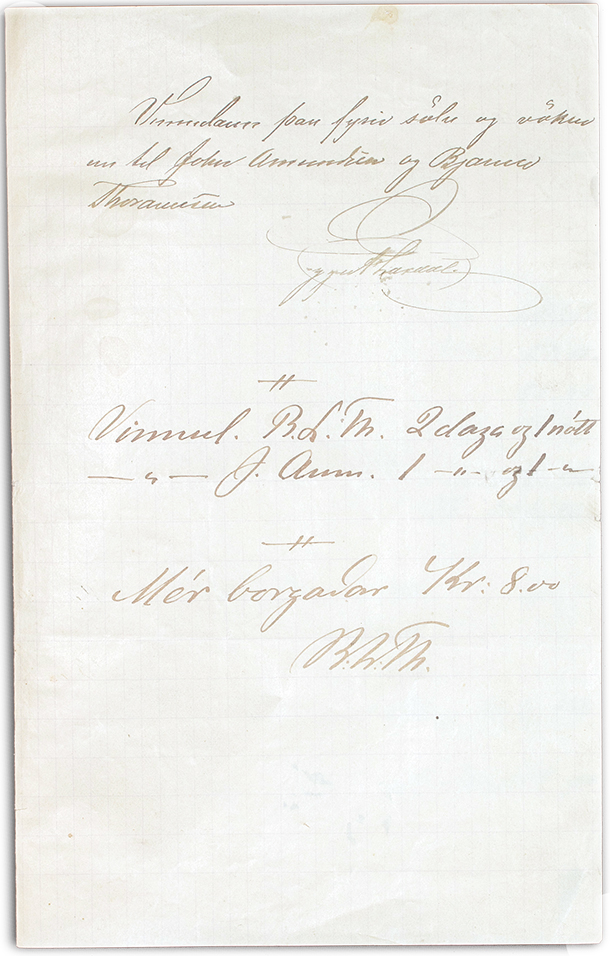 Vinnulaun þau fyrir sölu og vökur
um til John Amundsen og Bjarna
Thorarensen
Vinnul. B.L.Th. 2 daga og 1 nótt
— „ — J. Aum. 1 — „ — og 1 — „ —
Mér borgaðar Kr: 8.00
B.L.Th.